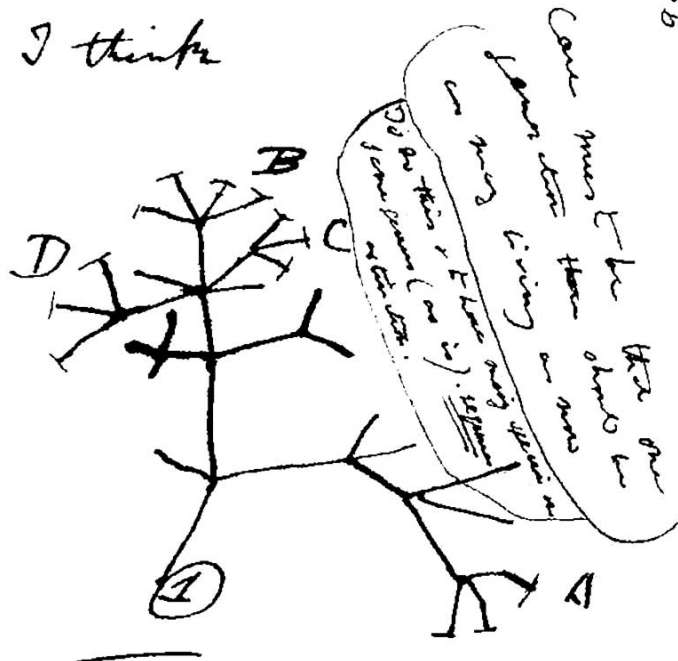 I think
B
D
C
A
1
Case must be that one
generation then should be
as many living as now
To do this & to have many species in
same genus (as is). requires
extinction.